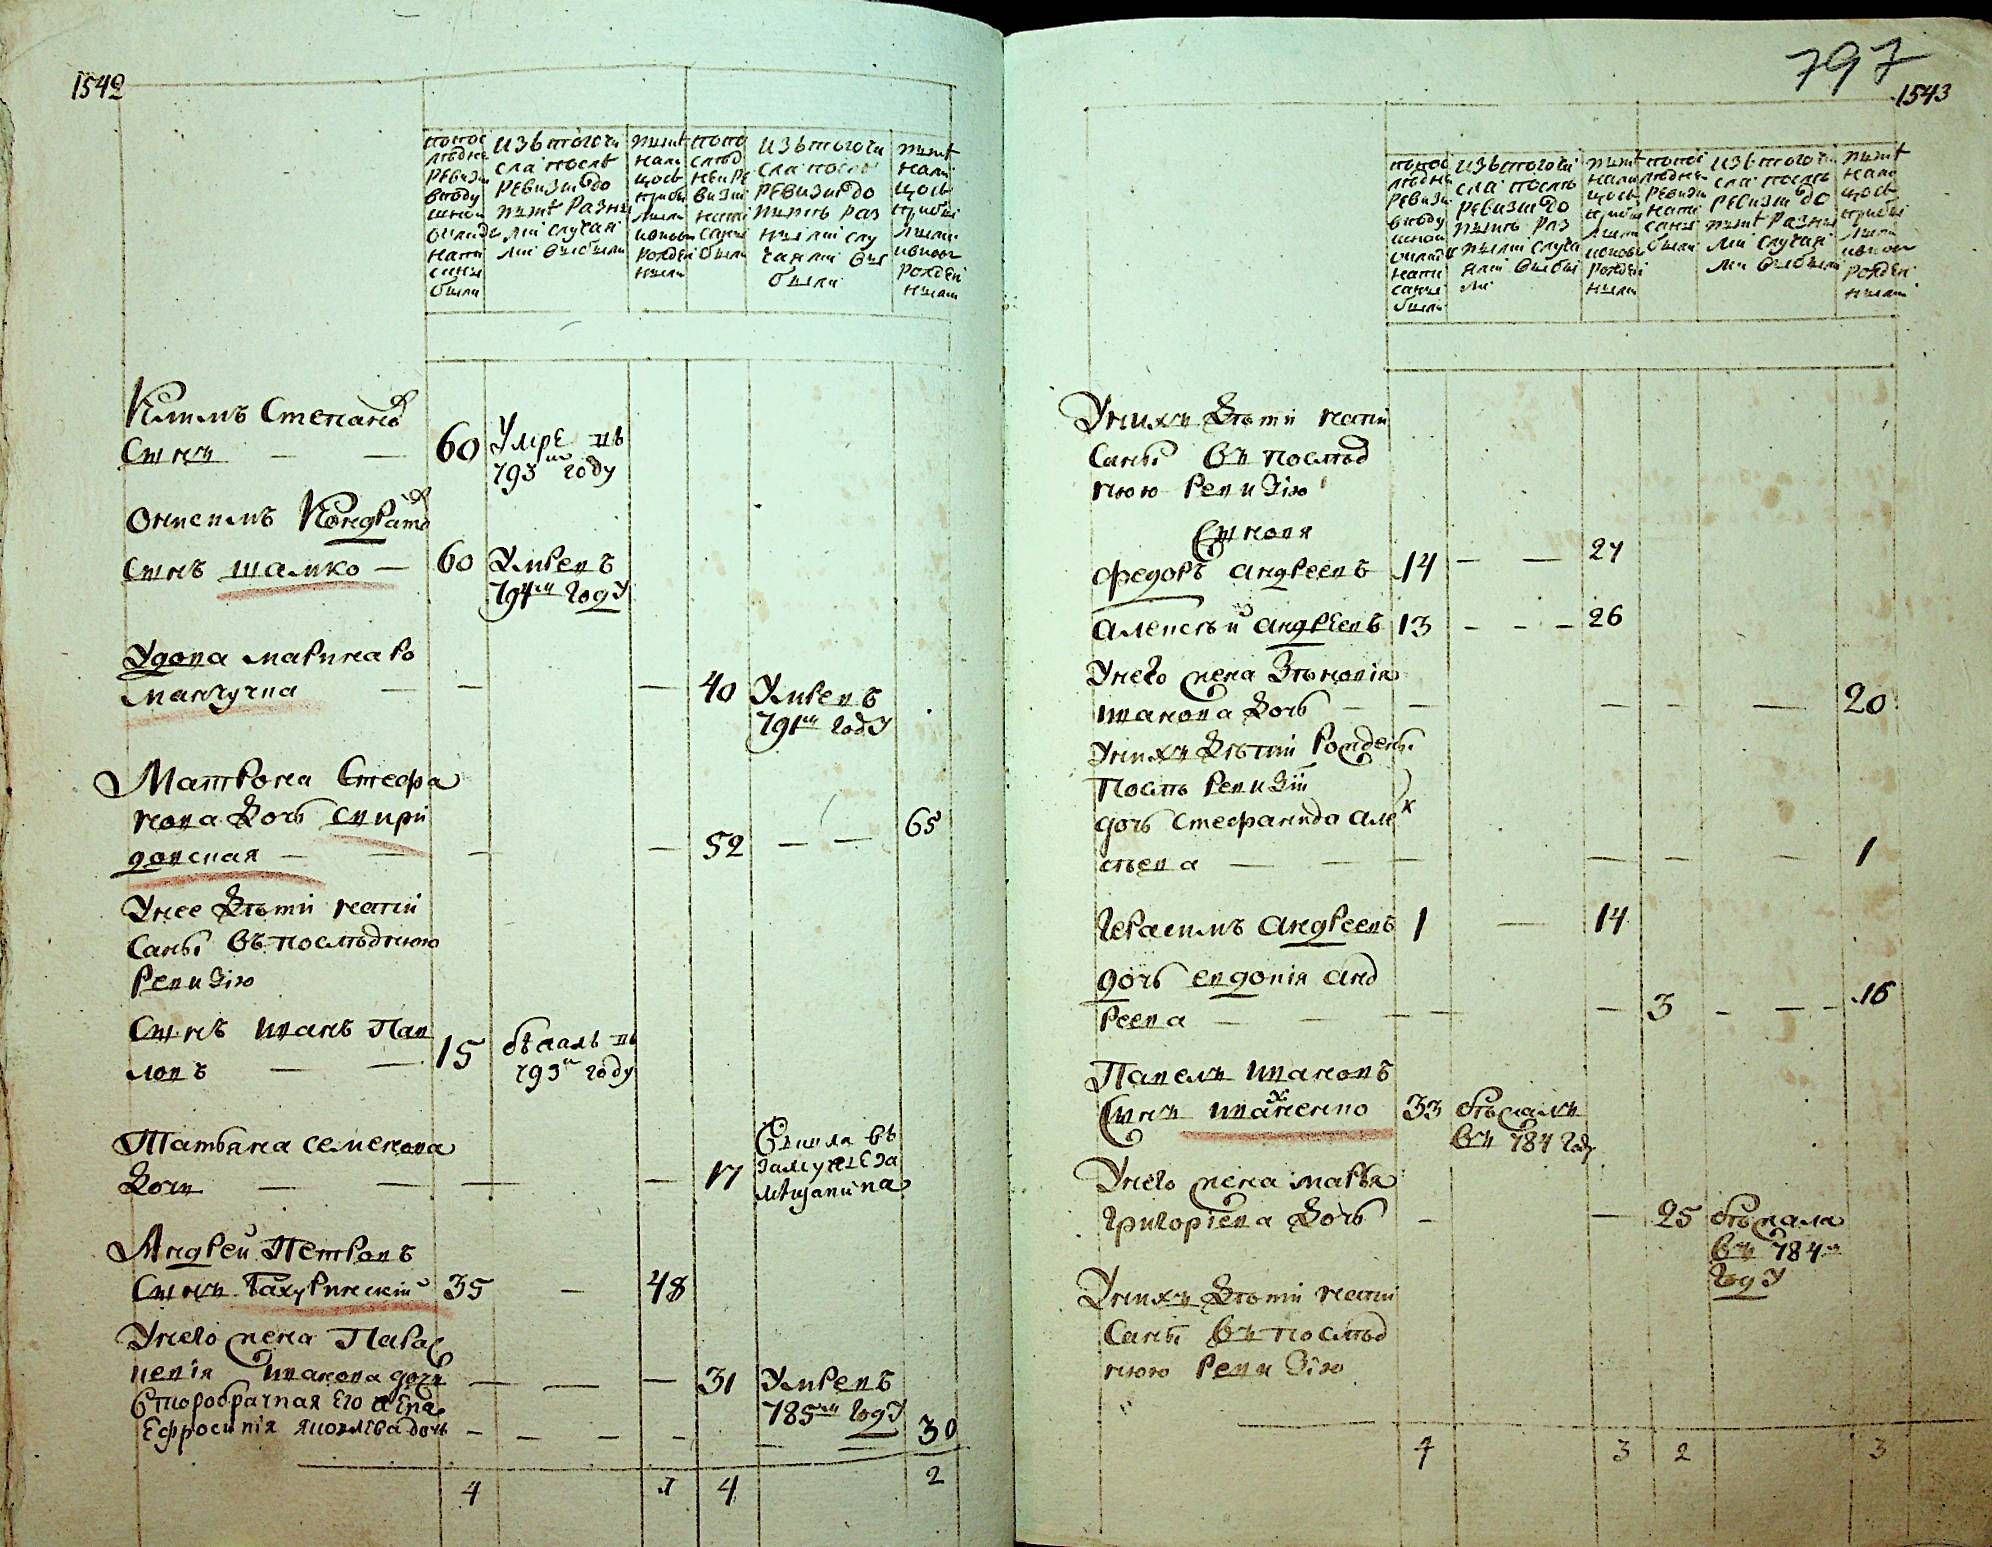 1542
по пос
ледне
ревизи
в коду
шной
окладъ
напи
саны
были
изъ того чи
сла после
ревизіи до
ныне разны
ми случая
ми выбыли
ныне
нали
цо съ
прибы
лыми
и вновь
рожден
ными
по по
след
ней ре
визіи
напи
саны
были
изъ того чи
сла после
ревизіи до
ныне раз
ными слу
чаями вы
были
ныне
нали
цо съ
прибы
лыми
и вновь
рожден
ными
Климъ Степановъ
Сынъ — — 60 Умре въ
793м году
Онисимъ Кондратовъ
Сынъ шамко — 60 Умревъ
794м году
Удова марина ро
манчучка — — — 40 Умревъ
791м году
Матрона Стефа
нова дочь спири
довская — — — — 52 — — 65
У нее дети напи
саны въ последнюю
ревизію
Сынъ иванъ Пав
ловъ — — 15 бежалъ въ
793м году
Татьяна семенова
дочь — — — — 17 Вышла въ
замуже за
мещанина
Андрей Петровъ
Сынъ бахуринский 35 — 48
У него жена Парас
кевія иванова дочь — — — 31 Умревъ
785м году
Второбрачная его жена
Ефросинія яковлева дочь — — — — — — 30
4 1 4 2
797
1543
по пос
ледне
ревизи
в коду
шной
окладъ
напи
саны
были
изъ того чи
сла после
ревизіи до
ныне раз
ными случа
ями выбы
ли
ныне
нали
цо съ
прибы
лыми
и вновь
рожден
ными
по пос
ледне
ревизи
напи
саны
были
изъ того чи
сла после
ревизіи до
ныне разны
ми случая
ми выбыли
ныне
нали
цо съ
прибы
лыми
и вновь
рожден
ными
У нихъ дети напи
саны въ послед
нюю ревизію
Сыновя
Федоръ андреевъ 14 — — 27
алексей андреевъ 13 — — — 26
У него жена Зеновія
иванова дочь — — — — — 20
У нихъ детии рожденны
после ревизіи
дочь стефанида алек
сеева — — — — — — 1
Герасимъ андреевъ 1 — 14
дочь евдокія анд
реева — — — — — 3 — — — 16
Павелъ ивановъ
Сынъ иваненко 33 бежалъ
въ 784 году
У него жена марья
григориева дочь — — 25 бежала
въ 784м
году
У нихъ дети напи
саны въ послед
нюю ревизію
4 3 2 3